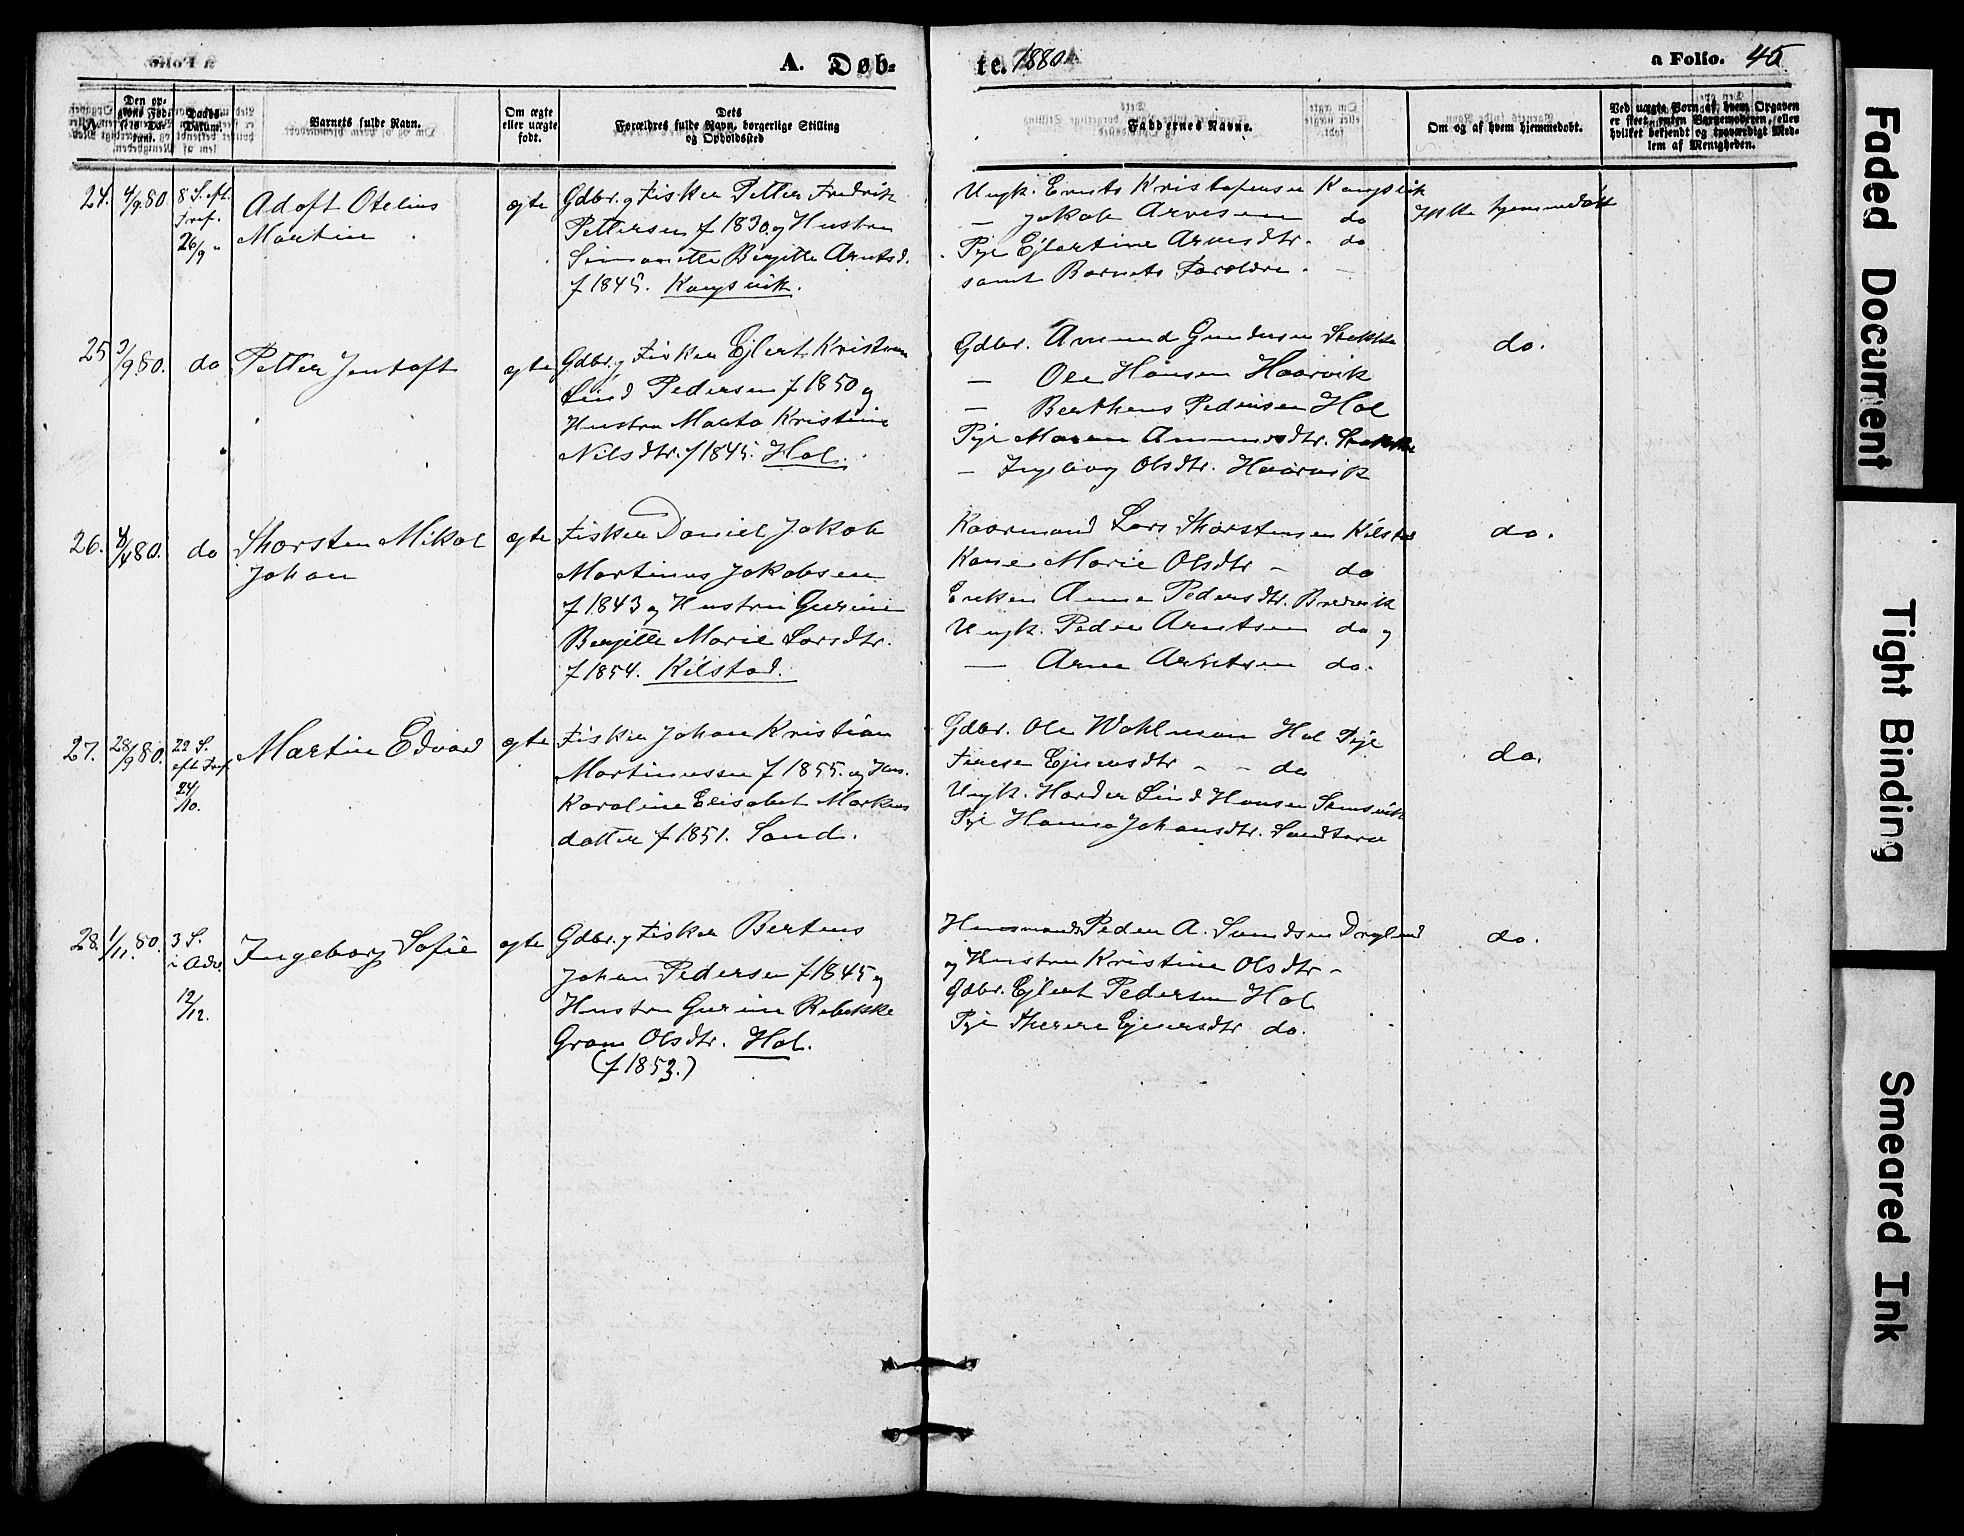 A. Døb-
te. 1880.
a Folio. 45
Den op-
givne Fød-
sels Da-
tum.
Daabs-
Datum.
Barnets fulde Navn.
Om ægte
eller uægte
født.
Dets
Forældres fulde Navn, borgerlige Stilling
og Opholdssted
Faddernes Navne.
Om og af hvem hjemmedøbt.
Ved uægte Børn af hvem Opgaven
er skeet, enten Barnemoderen, eller
hvilket bekjendt og troværdigt Med-
lem af Menigheden.
24.
4/9 80
8 S. eft.
Tref.
26/9 "
Adoft Otelius
Martin
ægte
Gdbr. og Fisker Petter Fredrik
Pettersen f 1830. og Hustru
Simonette Birgitte Arntsd.
f 1845. Kongsvik.
Ungk. Ernts Kristofersen Kongsvik
— Jakob Arnesen do
Pige Ejlertine Arnesdtr. do
samt Barnets Forældre. —
Ikke hjemmedøbt
25
3/9 80.
do
Petter Jentoft
ægte
Gdbr. og Fisker Ejlert Kristian
Lind Pedersen f 1850 og
Hustru Marta Kristine
Nilsdtr. f 1845. Hol.
Gdbr. Amund Gundersen Stokke
— Ole Hansen Haarvik
— Berthens Pedersen Hol
Pige Maren Amundsdtr. Stokke
— Ingeborg Olsdtr. Haarvik
do.
26.
80.
do
Thorsten Mikal
Johan
ægte
Fisker Daniel Jakob
Martinus Jakobsen
f 1843 og Hustru Gurine
Bergitte Marie Larsdtr.
f 1854. Kilstad.
Kaarmand Lars Thorstensen Kilstad
Kone Marie Olsdtr - do
Enken Anne Pedersdtr. Bredvik
Ungk. Peder Arntsen do og
— Arne Arntsen do.
do.
27.
28/9 80.
22 S.
eft. Tref.
24/10.
Martin Edvard
ægte
Fisker Johan Kristian
Martinussen f 1855. og Hus.
Karoline Elisabet Markus
datter f 1851. Sand.
Gdbr. Ole Wohlman Hol Pige
Terese Ejnersdtr - - do
Ungk. Harder Lind Hansen Sæmsvik
Pige Hanna Johansdtr. Sandtorv
do.
28.
1/11. 80.
3 S.
i Adv.
12/12.
Ingeborg Sofie
ægte
Gdbr. og Fisker Bertens
Johan Pedersen f 1845 og
Hustru Gurine Rebekke
Gram Olsdtr. Hol.
(f 1853.)
Husmands Peder A. Sandsen Dragland
og Hustru Kristine Olsdtr -
Gdbr. Ejlert Pedersen Hol
Pige Therese Ejnersdtr do.
do.
Faded Document
Tight Binding
Smeared Ink